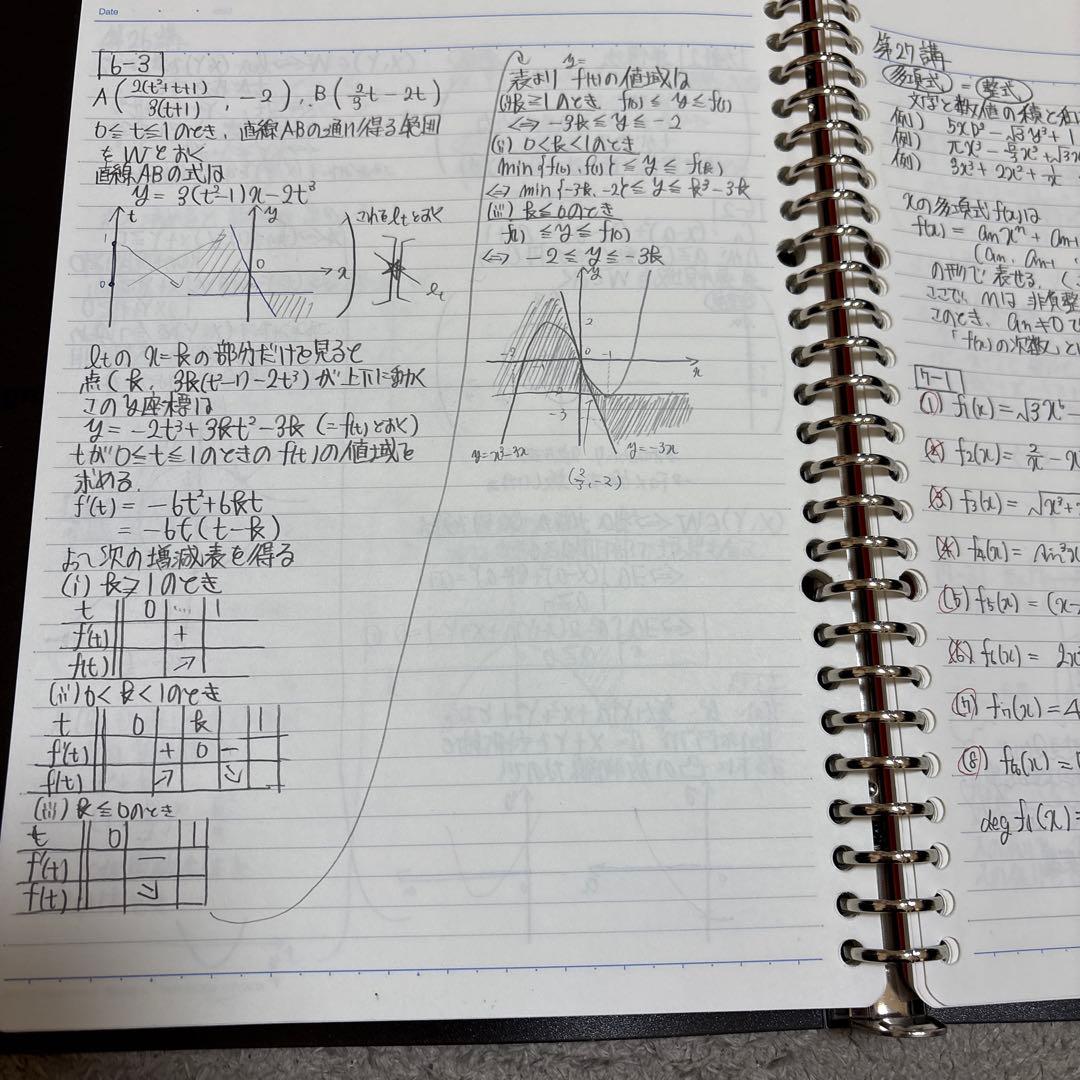 Date
6-3
A(2(t²+t+1)/3(t+1), -2), B(2/3 t - 2t)
0≦t≦1のとき、直線ABの通り得る範囲
をWとおく
直線ABの式は
y = 3(t²-1)x - 2t³
t
1
0
y
0
x
これをℓtとおく
ℓt
ℓtの x=kの部分だけを見ると
点(k, 3k(t²-1)-2t³)が上下に動く
このy座標は
y = -2t³+3kt²-3k (=f(t)とおく)
tが0≦t≦1のときのf(t)の値域を
求める.
f'(t) = -6t²+6kt
= -6t(t-k)
よって次の増減表を得る
(i) k≧1のとき
t 0 … 1
f'(t) +
f(t) ↗
(ii) 0<k<1のとき
t 0 k 1
f'(t) + 0 -
f(t) ↗ ↘
(iii) k≦0のとき
t 0 1
f'(t) -
f(t) ↘
y=
表より f(t)の値域は
(i) k≧1のとき, f(0) ≦ y ≦ f(1)
⇔ -3k ≦ y ≦ -2
(ii) 0<k<1のとき
min{f(0), f(1)} ≦ y ≦ f(k)
⇔ min{-3k, -2} ≦ y ≦ k³-3k
(iii) k≦0のとき
f(1) ≦ y ≦ f(0)
⇔ -2 ≦ y ≦ -3k
y
2
0
-1
x
-3
y=x³-3x
y=-3x
(2/3, -2)
第27講
多項式 = 整式
文字と数値の積と和
例)
例)
例) 3x³ + 2x² +
xの多項式f(x)は
f(x) = anxⁿ + an-1
(an, an-1
の形で表せる. (
ここで, nは 非負整
このとき, an≠0で
「f(x)の次数」と
7-1
(1) f1(x) = √3x⁶ -
(2) f2(x) = 2/x - x
(3) f3(x) = √x³+
(4) f4(x) = sin³x
(5) f5(x) = (x-
(6) f6(x) = 2x
(7) f7(x) = 4
(8) f8(x) =
deg f1(x) =